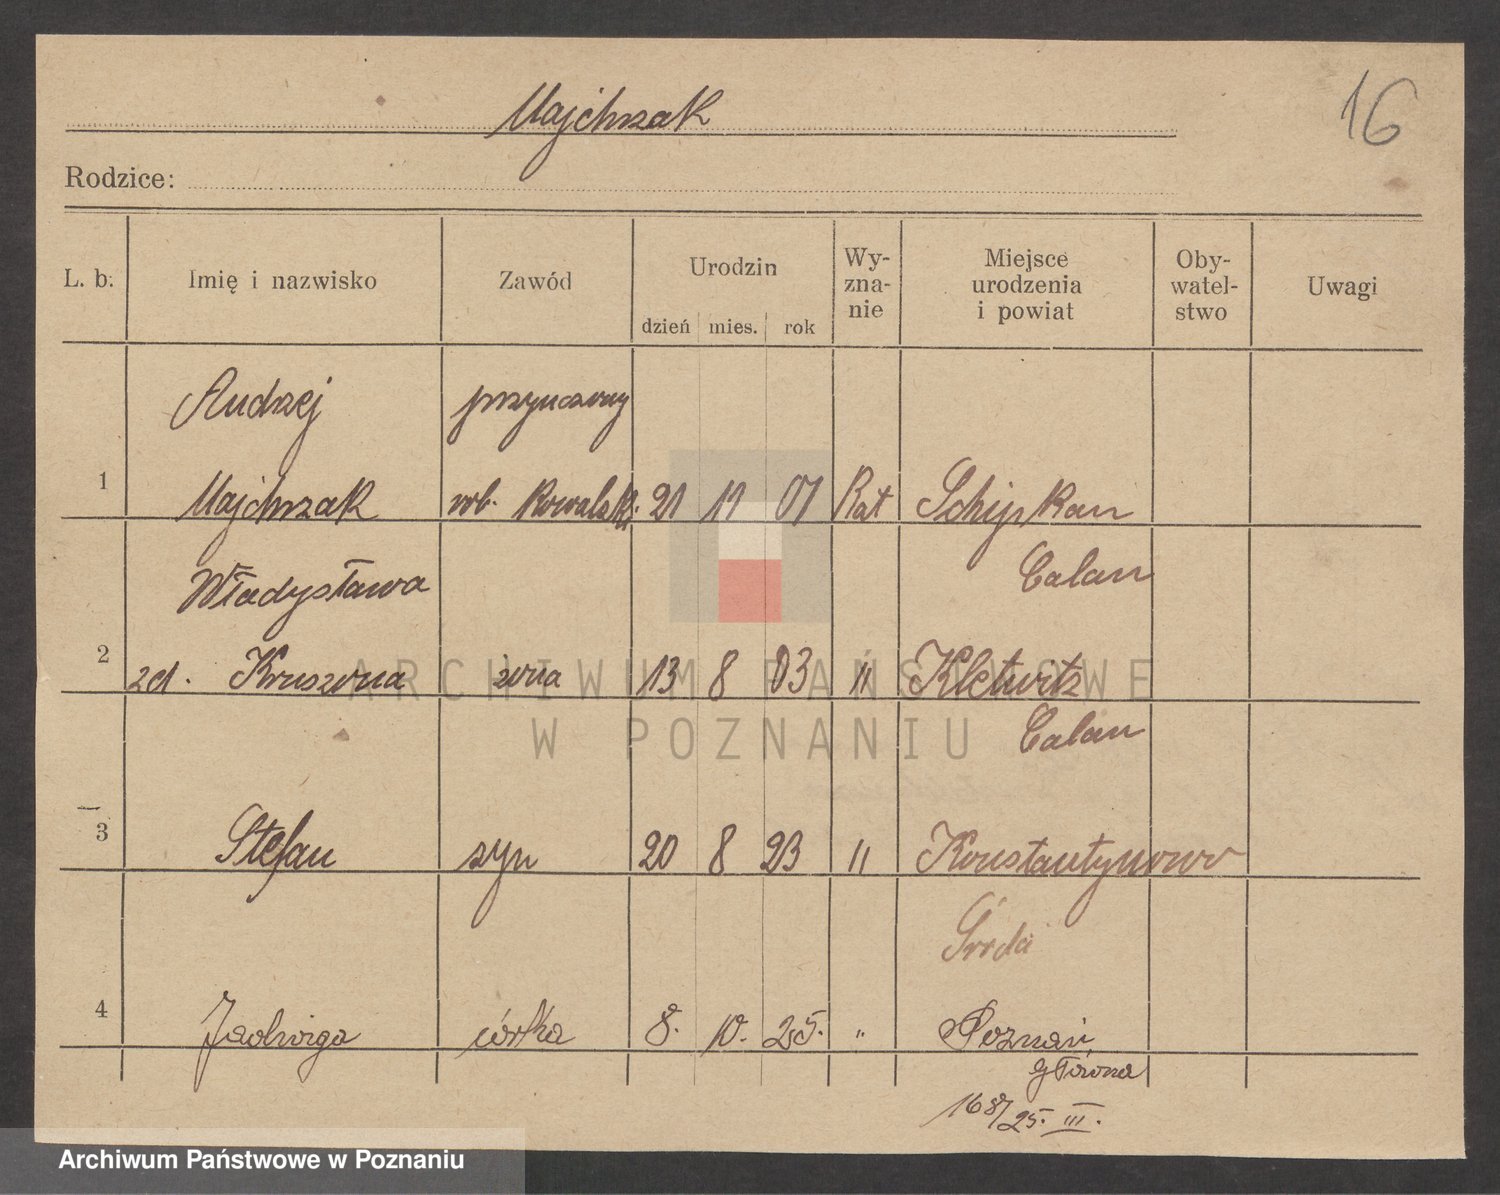 Majchrzak
16
Rodzice:
L. b.
Imię i nazwisko
Zawód
Urodzin
dzień mies. rok
Wy-
zna-
nie
Miejsce
urodzenia
i powiat
Oby-
watel-
stwo
Uwagi
Andrzej
1 Majchrzak rob. Kowalski 21 11 01 Kat Schipkau
Calau
Władysława
2 zd. Kruszona żona 13 8 03 " Klettwitz
Calau
3 Stefan syn 20 8 23 " Konstantynowo
Środa
4 Jadwiga córka 8. 10. 25. " Poznań
Główna
168/25. III.
ARCHIWUM PAŃSTWOWE
W POZNANIU
Archiwum Państwowe w Poznaniu